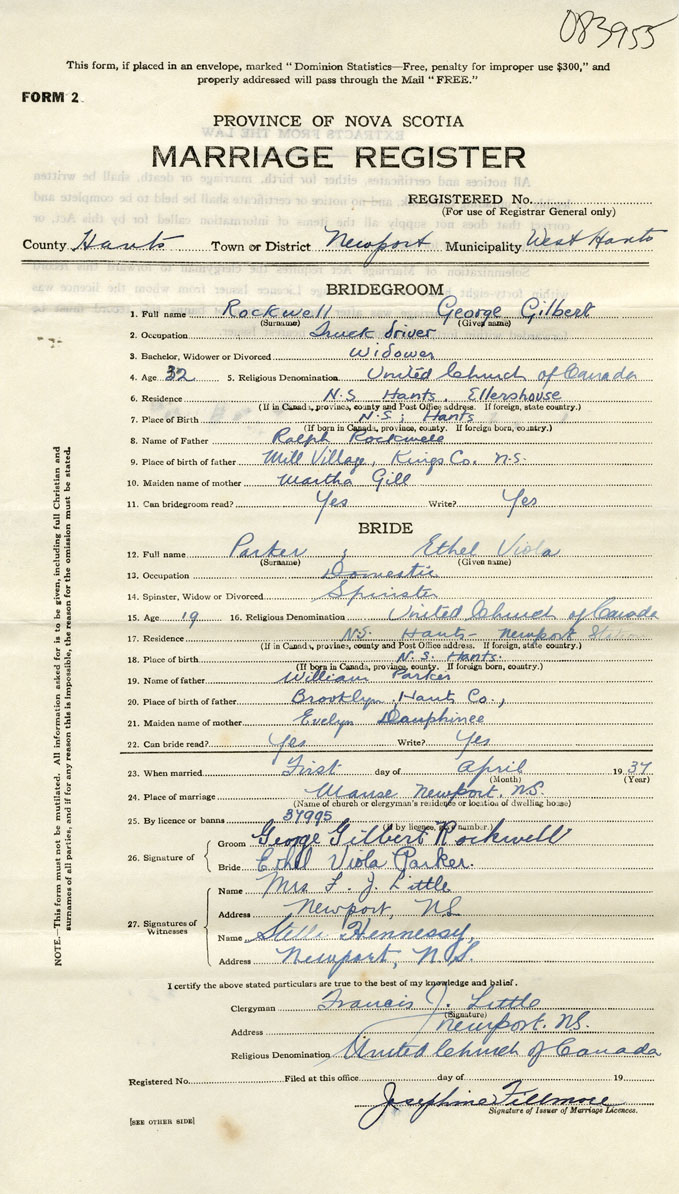 083955
This form, if placed in an envelope, marked "Dominion Statistics—Free, penalty for improper use $300," and
properly addressed will pass through the Mail "FREE."
FORM 2
PROVINCE OF NOVA SCOTIA
MARRIAGE REGISTER
REGISTERED No.
(For use of Registrar General only)
County Hants Town or District Newport Municipality West Hants
BRIDEGROOM
1. Full name Rockwell George Gilbert
(Surname) (Given name)
2. Occupation Truck driver
3. Bachelor, Widower or Divorced Widower
4. Age 32 5. Religious Denomination United Church of Canada
6. Residence N.S. Hants, Ellershouse
(If in Canada, province, county and Post Office address. If foreign, state country.)
7. Place of Birth N.S; Hants
(If born in Canada, province, county. If foreign born, country.)
8. Name of Father Ralph Rockwell
9. Place of birth of father Mill Village, Kings Co. N.S.
10. Maiden name of mother Martha Gill
11. Can bridegroom read? Yes Write? Yes
BRIDE
12. Full name Parker ; Ethel Viola
(Surname) (Given name)
13. Occupation Domestic
14. Spinster, Widow or Divorced Spinster
15. Age 19 16. Religious Denomination United Church of Canada
17. Residence N.S. Hants- Newport Station
(If in Canada, province, county and Post Office address. If foreign, state country.)
18. Place of birth N.S. Hants.
(If born in Canada, province, county. If foreign born, country.)
19. Name of father William Parker
20. Place of birth of father Brooklyn, Hants Co.,
21. Maiden name of mother Evelyn Dauphinee
22. Can bride read? Yes Write? Yes
23. When married First day of April 1937
(Month) (Year)
24. Place of marriage Manse Newport, N.S.
(Name of church or clergyman's residence or location of dwelling house)
25. By licence or banns 37995
(If by licence, number.)
26. Signature of Groom George Gilbert Rockwell
Bride Ethel Viola Parker.
27. Signatures of Witnesses
Name Mrs F. J. Little
Address Newport, NS
Name Stella Hennessy,
Address Newport, N.S.
I certify the above stated particulars are true to the best of my knowledge and belief.
Clergyman Francis J. Little
(Signature)
Address Newport. NS.
Religious Denomination United Church of Canada
Registered No. Filed at this office day of 19
Josephine Fillmore
Signature of Issuer of Marriage Licences.
[SEE OTHER SIDE]
NOTE.—This form must not be mutilated. All information asked for is to be given, including full Christian and
surnames of all parties, and if for any reason this is impossible, the reason for the omission must be stated.